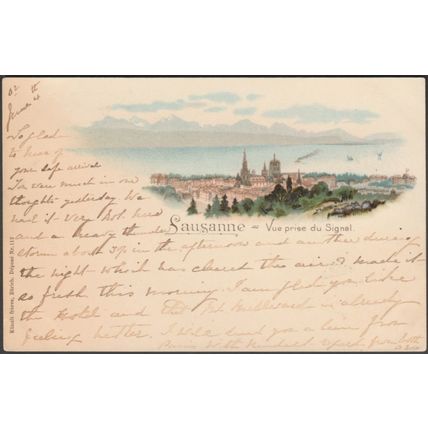 So glad
to hear of
your safe arrival
very much in our
thoughts yesterday We
had it very hot here
and a heavy thunder
Lausanne - Vue prise du Signal.
storm about 3 in the afternoon and another during
the night which has cleared the air & made it
so fresh this morning. I am glad you like
the Hotel and that is already
feeling better. I will send you a line from
Paris With kindest from both
Künzli frères, Zürich. Déposé Nr. 117